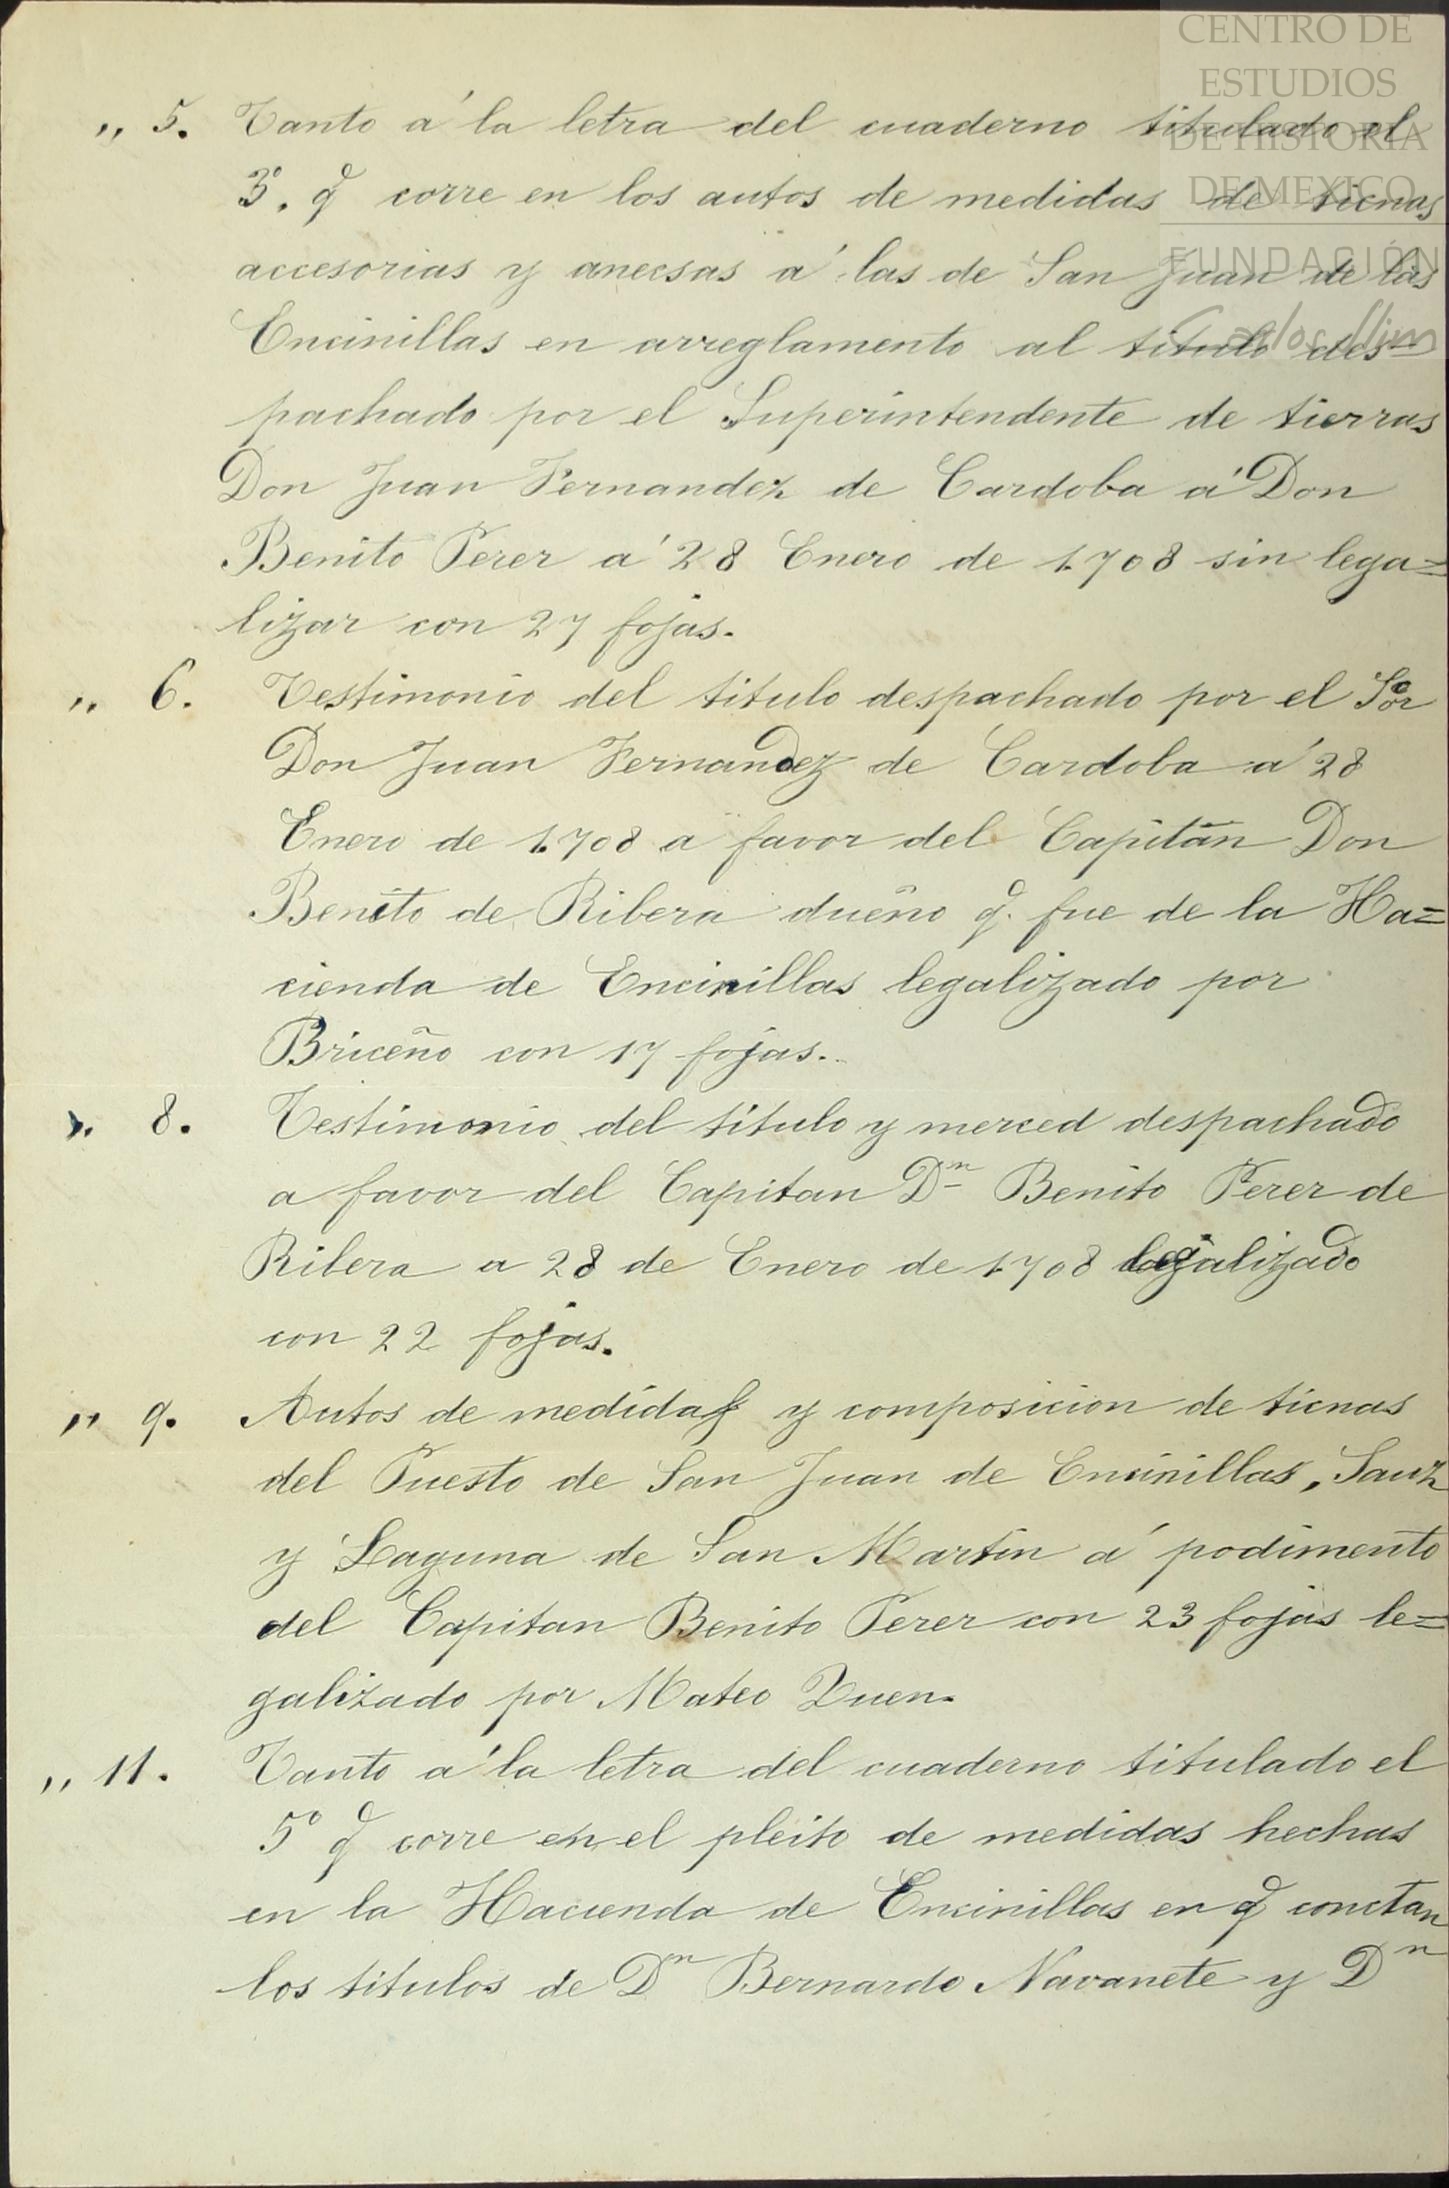 CENTRO DE
ESTUDIOS
DE HISTORIA
DE MEXICO
FUNDACIÓN
Carlos Slim
„ 5. Tanto á la letra del cuaderno titulado el
3º. q̃ corre en los autos de medidas de tierras
accesorias y anecsas á las de San Juan de las
Encinillas en arreglamento al titulo des=
pachado por el Superintendente de tierras
Don Juan Fernandez de Cardoba á Don
Benito Perer á 28 Enero de 1.708 sin lega=
lizar con 27 fojas.
„ 6. Testimonio del titulo despachado por el Sor
Don Juan Fernandez de Cardoba á 28
Enero de 1.708 a favor del Capitán Don
Benito de Ribera dueño q̃. fue de la Ha=
cienda de Encinillas legalizado por
Briceño con 17 fojas.
„ 8. Testimonio del titulo y merced despachado
a favor del Capitan Dⁿ Benito Perer de
Ribera a 28 de Enero de 1.708 legalizado
con 22 fojas.
„ 9. Autos de medidas y composicion de tierras
del Puesto de San Juan de Encinillas, Sauz
y Laguna de San Martin á podimento
del Capitan Benito Perer con 23 fojas le=
galizado por Mateo
„ 11. Tanto á la letra del cuaderno titulado el
5º q̃ corre en el pleito de medidas hechas
en la Hacienda de Encinillas en q̃ conctan
los titulos de Dⁿ Bernardo Navanete y Dⁿ